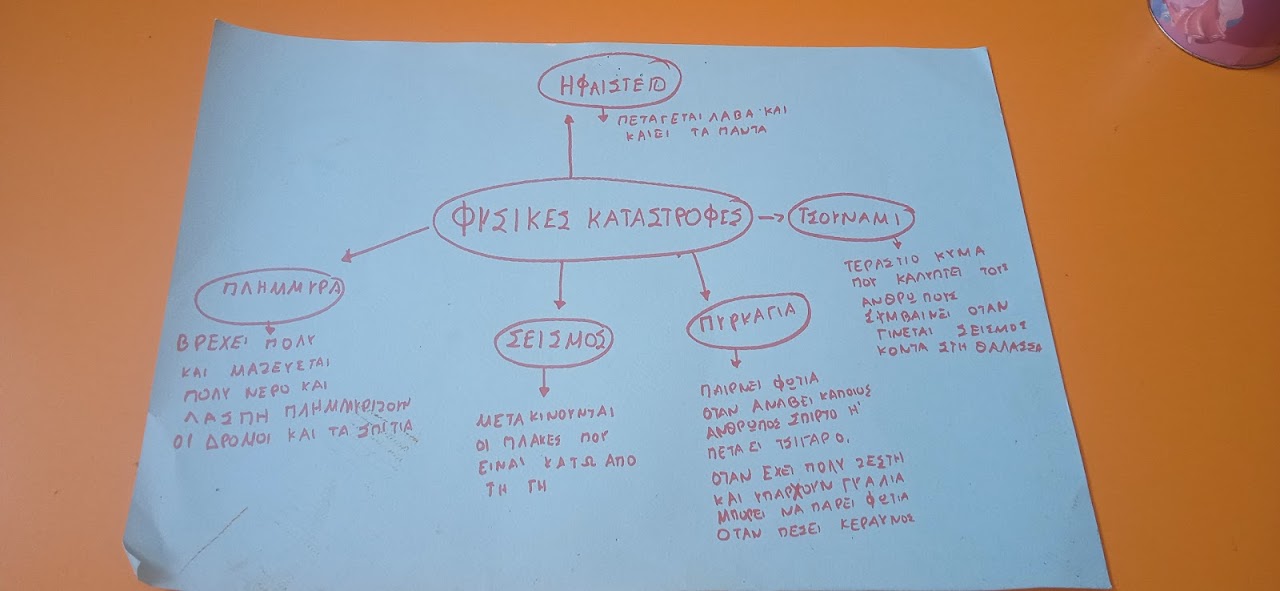 ΗΦΑΙΣΤΕΙΟ
ΠΕΤΑΓΕΤΑΙ ΛΑΒΑ ΚΑΙ
ΚΑΙΕΙ ΤΑ ΠΑΝΤΑ
ΦΥΣΙΚΕΣ ΚΑΤΑΣΤΡΟΦΕΣ
ΤΣΟΥΝΑΜΙ
ΤΕΡΑΣΤΙΟ ΚΥΜΑ
ΠΟΥ ΚΑΛΥΠΤΕΙ ΤΟΥΣ
ΑΝΘΡΩΠΟΥΣ
ΣΥΜΒΑΙΝΕΙ ΟΤΑΝ
ΓΙΝΕΤΑΙ ΣΕΙΣΜΟΣ
ΚΟΝΤΑ ΣΤΗ ΘΑΛΑΣΣΑ
ΠΛΗΜΜΥΡΑ
ΒΡΕΧΕΙ ΠΟΛΥ
ΚΑΙ ΜΑΖΕΥΕΤΑΙ
ΠΟΛΥ ΝΕΡΟ ΚΑΙ
ΛΑΣΠΗ ΠΛΗΜΜΥΡΙΖΟΥΝ
ΟΙ ΔΡΟΜΟΙ ΚΑΙ ΤΑ ΣΠΙΤΙΑ
ΣΕΙΣΜΟΣ
ΜΕΤΑΚΙΝΟΥΝΤΑΙ
ΟΙ ΠΛΑΚΕΣ ΠΟΥ
ΕΙΝΑΙ ΚΑΤΩ ΑΠΟ
ΤΗ ΓΗ
ΠΥΡΚΑΓΙΑ
ΠΑΙΡΝΕΙ ΦΩΤΙΑ
ΟΤΑΝ ΑΝΑΒΕΙ ΚΑΠΟΙΟΣ
ΑΝΘΡΩΠΟΣ ΣΠΙΡΤΟ Η'
ΠΕΤΑΕΙ ΤΣΙΓΑΡΟ.
ΟΤΑΝ ΕΧΕΙ ΠΟΛΥ ΖΕΣΤΗ
ΚΑΙ ΥΠΑΡΧΟΥΝ ΓΥΑΛΙΑ
ΜΠΟΡΕΙ ΝΑ ΠΑΡΕΙ ΦΩΤΙΑ
ΟΤΑΝ ΠΕΣΕΙ ΚΕΡΑΥΝΟΣ